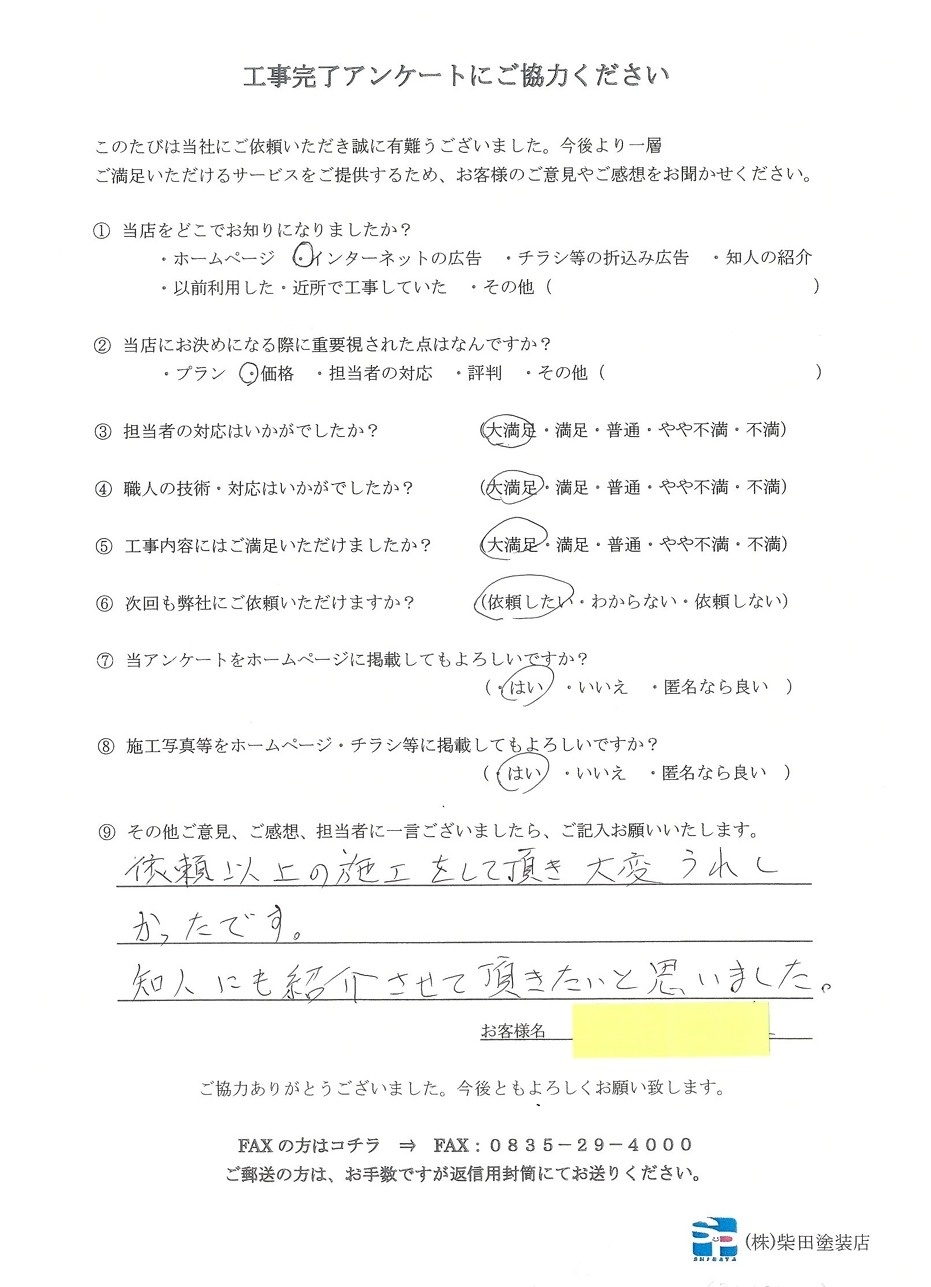 工事完了アンケートにご協力ください
このたびは当社にご依頼いただき誠に有難うございました。今後より一層
ご満足いただけるサービスをご提供するため、お客様のご意見やご感想をお聞かせください。
① 当店をどこでお知りになりましたか？
・ホームページ ・インターネットの広告 ・チラシ等の折込み広告 ・知人の紹介
・以前利用した・近所で工事していた ・その他（ ）
② 当店にお決めになる際に重要視された点はなんですか？
・プラン ・価格 ・担当者の対応 ・評判 ・その他（ ）
③ 担当者の対応はいかがでしたか？ （大満足・満足・普通・やや不満・不満）
④ 職人の技術・対応はいかがでしたか？ （大満足・満足・普通・やや不満・不満）
⑤ 工事内容にはご満足いただけましたか？ （大満足・満足・普通・やや不満・不満）
⑥ 次回も弊社にご依頼いただけますか？ （依頼したい・わからない・依頼しない）
⑦ 当アンケートをホームページに掲載してもよろしいですか？
（・はい ・いいえ ・匿名なら良い ）
⑧ 施工写真等をホームページ・チラシ等に掲載してもよろしいですか？
（・はい ・いいえ ・匿名なら良い ）
⑨ その他ご意見、ご感想、担当者に一言ございましたら、ご記入お願いいたします。
依頼以上の施工をして頂き大変うれし
かったです。
知人にも紹介させて頂きたいと思いました。
お客様名
ご協力ありがとうございました。今後ともよろしくお願い致します。
FAXの方はコチラ ⇒ FAX：０８３５－２９－４０００
ご郵送の方は、お手数ですが返信用封筒にてお送りください。
SP SHIBATA (株)柴田塗装店